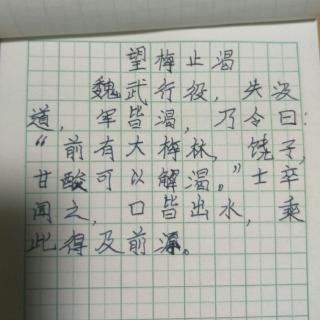 望梅止渴
魏武行役，失汲
道，军皆渴，乃令曰：
“前有大梅林，饶子，
甘酸可以解渴。”士卒
闻之，口皆出水，乘
此得及前源。